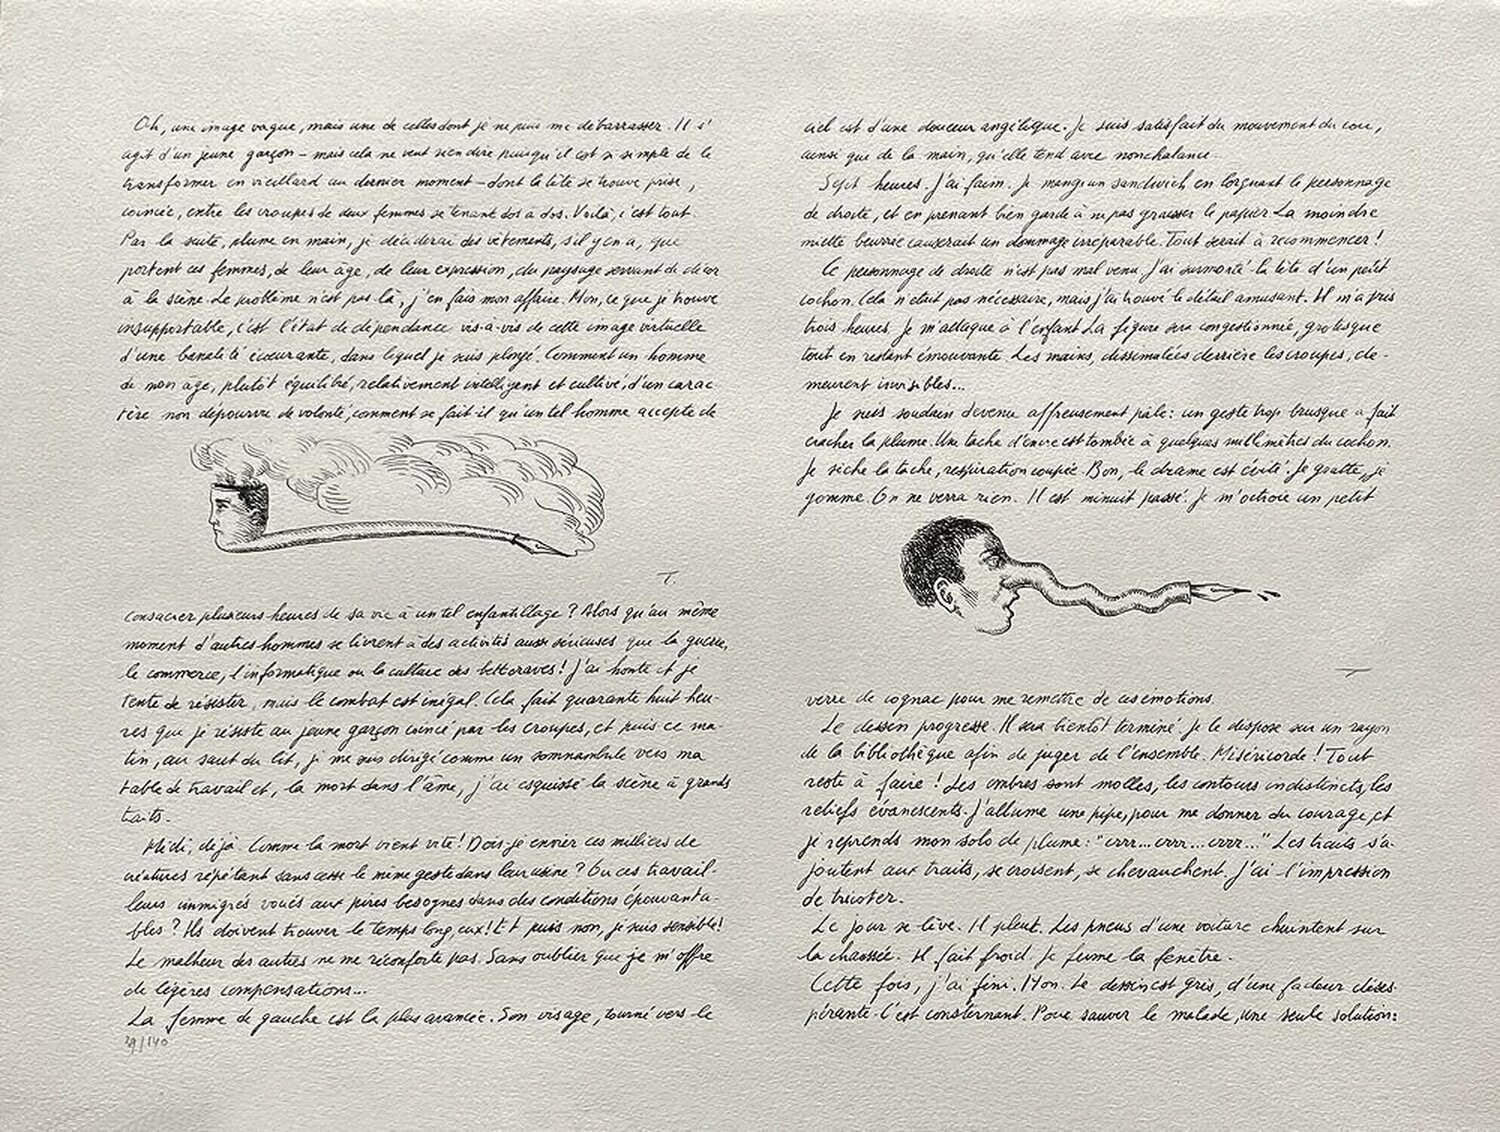 Oh, une image vague, mais une de celles dont je ne puis me débarrasser. Il s'
agit d'un jeune garçon – mais cela ne veut rien dire puisqu'il est si simple de le
transformer en vieillard au dernier moment – dont la tête se trouve prise,
coincée, entre les croupes de deux femmes se tenant dos à dos. Voilà, c'est tout.
Par la suite, plume en main, je déciderai des vêtements, s'il y en a, que
portent ces femmes, de leur âge, de leur expression, du paysage servant de décor
à la scène. Le problème n'est pas là, j'en fais mon affaire. Non, ce que je trouve
insupportable, c'est l'état de dépendance vis-à-vis de cette image virtuelle
d'une banalité écœurante, dans lequel je suis plongé. Comment un homme
de mon âge, plutôt équilibré, relativement intelligent et cultivé, d'un carac-
tère non dépourvu de volonté, comment se fait-il qu'un tel homme accepte de
T.
consacrer plusieurs heures de sa vie à un tel enfantillage ? Alors qu'au même
moment d'autres hommes se livrent à des activités aussi sérieuses que la guerre,
le commerce, l'informatique ou la culture des betteraves ! J'ai honte et je
tente de résister, mais le combat est inégal. Cela fait quarante huit heu-
res que je résiste au jeune garçon coincé par les croupes, et puis ce ma-
tin, au saut du lit, je me suis dirigé comme un somnambule vers ma
table de travail et, la mort dans l'âme, j'ai esquissé la scène à grands
traits.
Midi, déjà. Comme la mort vient vite ! Dois-je envier ces milliers de
créatures répétant sans cesse le même geste dans leur usine ? Ou ces travail-
leurs immigrés voués aux pires besognes dans des conditions épouvanta-
bles ? Ils doivent trouver le temps long, eux ! Et puis non, je suis sensible !
Le malheur des autres ne me réconforte pas. Sans oublier que je m'offre
de légères compensations...
La femme de gauche est la plus avancée. Son visage, tourné vers le
39/140
ciel est d'une douceur angélique. Je suis satisfait du mouvement du cou,
ainsi que de la main, qu'elle tend avec nonchalance.
Sept heures. J'ai faim. Je mange un sandwich en lorgnant le personnage
de droite, et en prenant bien garde à ne pas graisser le papier. La moindre
miette beurrée causerait un dommage irréparable. Tout serait à recommencer !
Ce personnage de droite n'est pas mal venu. J'ai surmonté la tête d'un petit
cochon. Cela n'était pas nécessaire, mais j'ai trouvé le détail amusant. Il m'a pris
trois heures. Je m'attaque à l'enfant. La figure sera congestionnée, grotesque
tout en restant émouvante. Les mains, dissimulées derrière les croupes, de-
meurent invisibles...
Je suis soudain devenu affreusement pâle : un geste trop brusque a fait
cracher la plume. Une tache d'encre est tombée à quelques millimètres du cochon.
Je sèche la tache, respiration coupée. Bon, le drame est évité. Je gratte, je
gomme. On ne verra rien. Il est minuit passé. Je m'octroie un petit
T
verre de cognac pour me remettre de ces émotions.
Le dessin progresse. Il sera bientôt terminé. Je le dispose sur un rayon
de la bibliothèque afin de juger de l'ensemble. Miséricorde ! Tout
reste à faire ! Les ombres sont molles, les contours indistincts, les
reliefs évanescents. J'allume une pipe, pour me donner du courage, et
je reprends mon solo de plume : "crrr... crrr... crrr..." Les traits s'a-
joutent aux traits, se croisent, se chevauchent. J'ai l'impression
de tricoter.
Le jour se lève. Il pleut. Les pneus d'une voiture chuintent sur
la chaussée. Il fait froid. Je ferme la fenêtre.
Cette fois, j'ai fini. Non. Le dessin est gris, d'une fadeur déses-
pérante. C'est consternant. Pour sauver le malade, une seule solution :